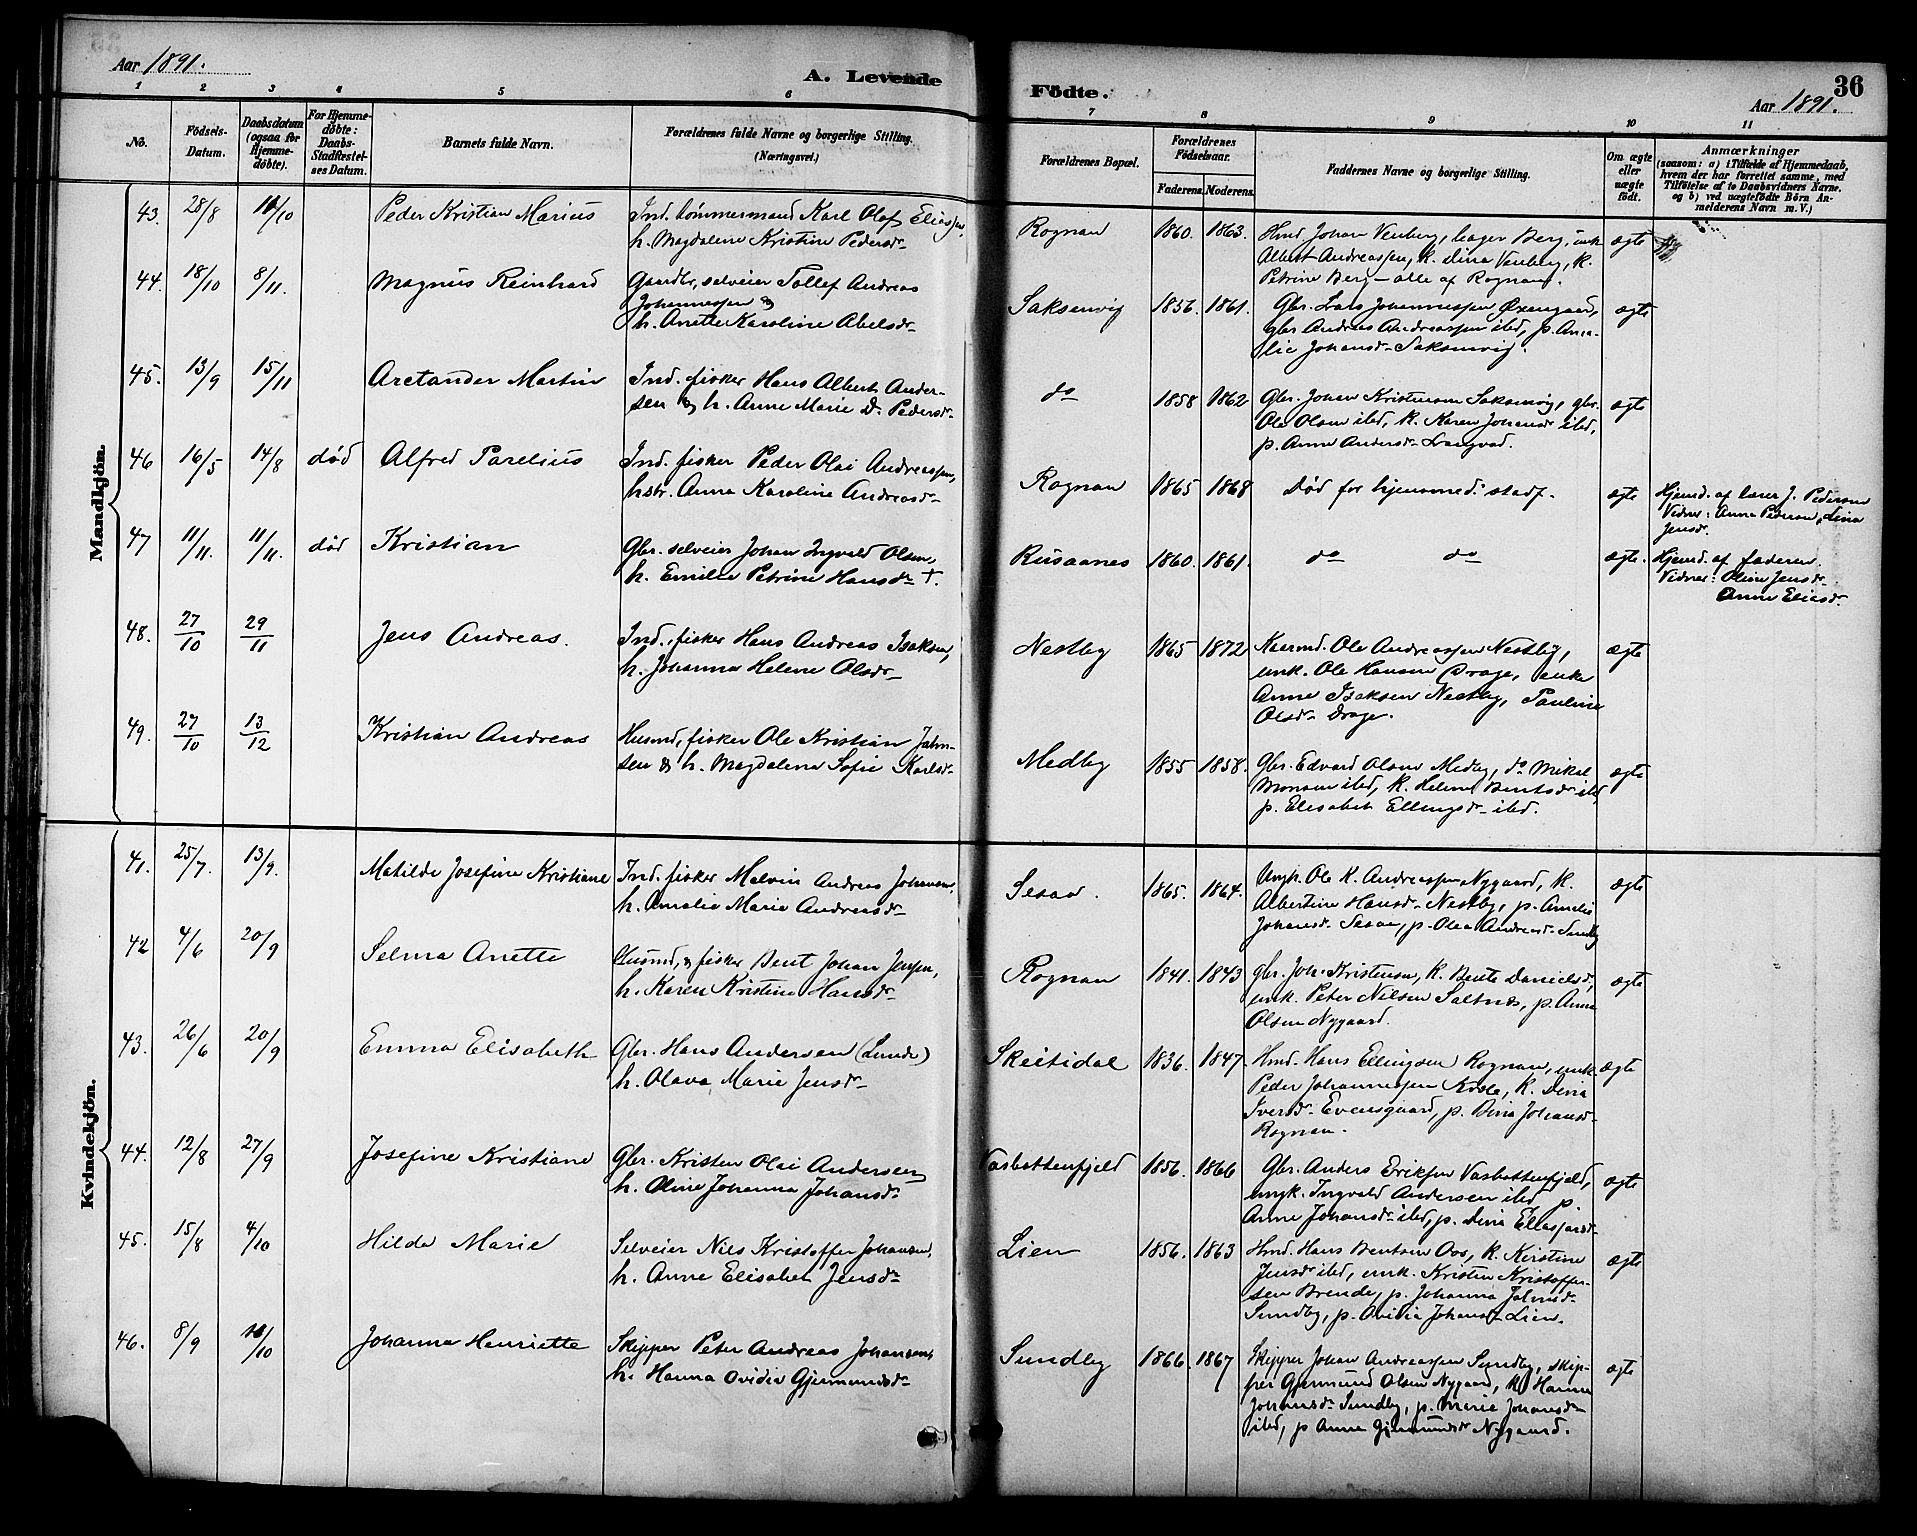 Aar 1891.
A. Levende Födte.
36
Aar 1891.
1 2 3 4 5 6 7 8 9 10 11
No.
Födsels-Datum.
Daabsdatum (ogsaa for Hjemmedöbte).
For Hjemmedöbte: Daabs-Stadfæstelses Datum.
Barnets fulde Navn.
Forældrenes fulde Navne og borgerlige Stilling.
(Næringsvei.)
Forældrenes Bopæl.
Forældrenes Födselsaar.
Faderens. Moderens.
Faddernes Navne og borgerlige Stilling.
Om ægte eller uægte födt.
Anmærkninger
(saasom: a) i Tilfælde af Hjemmedaab, hvem der har forrettet samme, med Tilföielse af to Daabsvidners Navne. og b) ved uægtefödte Börn Anmelderens Navn m. V.)
Mandkjön.
43. 28/8 11/10 Peder Kristian Marius
Ind. tömmermand Karl Olaf Eliassen,
h. Magdalene Kristine Pedersdr
Rognan 1860. 1863.
Hmd Johan Venberg, Berg, unk
Albert Andreassen, k. Dina Venberg, k.
Petrine Berg - alle af Rognan.
ægte
44. 18/10 8/11. Magnus Reinhard
Gaardbr, selveier Tollef Andreas
Johannessen &
h. Anette Karoline Abelsdr
Saksenvig 1856. 1861.
Gbr. Lars Johannessen Øxengaard,
gbr Andreas Andreassen ibd, p. Ama-
lie Johansdr Saksenvig.
ægte
45. 13/9 15/11 Aretander Martin
Ind. fisker Hans Albert Ander-
sen & h. Anne Marie D. Pedersdr
do 1858 1862
Gbr. Johan Kristensen Saksenvig, gbr.
Ole Olsen ibd, k. Karen Johansdr ibd,
p. Anne Andersdr Langvad.
ægte
46 16/5 14/8 död Alfred Parelius
Ind. fisker Peder Olai Andreassen,
hstr. Anna Karoline Andreasdr
Rognan 1865 1868
Död for hjemmed. stadf.
ægte
Hjemd. af lærer J. Pedersen
Vidner: Anna Pedersen, Lina
Jensdr.
47 11/11. 11/11. död Kristian
Gbr. selveier Johan Ingvald Olsen,
h. Emilie Petrine Hansdr +.
Rusaanes 1860. 1861.
do do
ægte.
Hjemd. af faderen.
Vidner: Oline Jensdr
Anne Eliasdr.
48. 27/10 29/11 Jens Andreas.
Ind., fisker Hans Andreas Isaksen,
h. Johanna Helene Olsdr
Nestby 1865 1872
Kaarmd. Ole Andreassen Nestby,
unk. Ole Hansen Drage, enke
Anne Isaksen Nestby, Pauline
Olsdr Drage.
ægte
49. 27/10 13/12 Kristian Andreas
Husmd, fisker Ole Kristian Jahn-
sen & h. Magdalena Sofie Karlsdr
Medby 1855 1858.
Gbr. Edvard Olsen Medby, do Mikal
Monsen ibd, k. Helene Bentsdr ibd,
p. Elisabet Ellingsdr ibd.
ægte
Kvindekjön.
41. 25/7. 13/9. Matilde Josefine Kristiane
Ind. fisker Malvin Andreas Johansen,
h. Amalie Marie Andreasdr
Sesaa. 1865. 1864.
Ungk. Ole K. Andreassen Nygaard, k.
Albertine Hansdr Nestby, p. Amelie
Johansdr Sesaa, p. Olea Andreasdr Sundby
ægte
42 4/6 20/9 Selma Anette
Husmd, & fisker Bent Johan Jensen,
h. Karen Kristine Hansdr
Rognan 1841. 1843
gbr. Joh. Kristensen, k. Bente Danielsdr,
unk. Peter Nilsen Saltnes, p. Anna
Olsen Nygaard.
ægte
43. 26/6 20/9 Emma Elisabeth
Gbr. Hans Andersen (Lunde)
h. Olava Marie Jensdr
Skeitidal 1836. 1847.
Hmd. Hans Ellingsen Rognan, unk
Peder Johannessen, k. Dina
Iversdr Evensgaard, p. Dina Johansdr
Rognan.
ægte
44. 12/8 27/9 Josefine Kristiane
Gbr. Kristen Olai Andersen
h. Oline Johanna Johansdr
Vasbottenfjeld 1856. 1866
Gbr. Anders Eriksen Vasbottenfjeld,
ungk. Ingvald Andersen ibd, p.
Anne Johansdr ibd, p. Dina
ægte
45. 15/8 4/10 Hilda Marie
Selveier Nils Kristoffer Johansen,
h. Anne Elisabet Jensdr
Lien 1856. 1863
Hmd. Hans Bentsen Oos, k. Kerstine
Jensdr ibd, unk. Kristen Kristoffer-
sen Brende, p. Johanna Jahnsdr
Sundby, p. Ovidia Johansdr Lien.
ægte
46. 8/9 11/10 Johanna Henriette
Skipper Peter Andreas Johansen,
h. Hanna Ovidia Gjermundsdr
Sundby 1866 1867
Skipper Johan Andreassen Sundby, skip-
per Gjermund Olsen Nygaard, k. Hanna
Johansdr Sundby, p. Marie Johansdr
ibd, p Anne Gjermundsdr Nygaard.
ægte